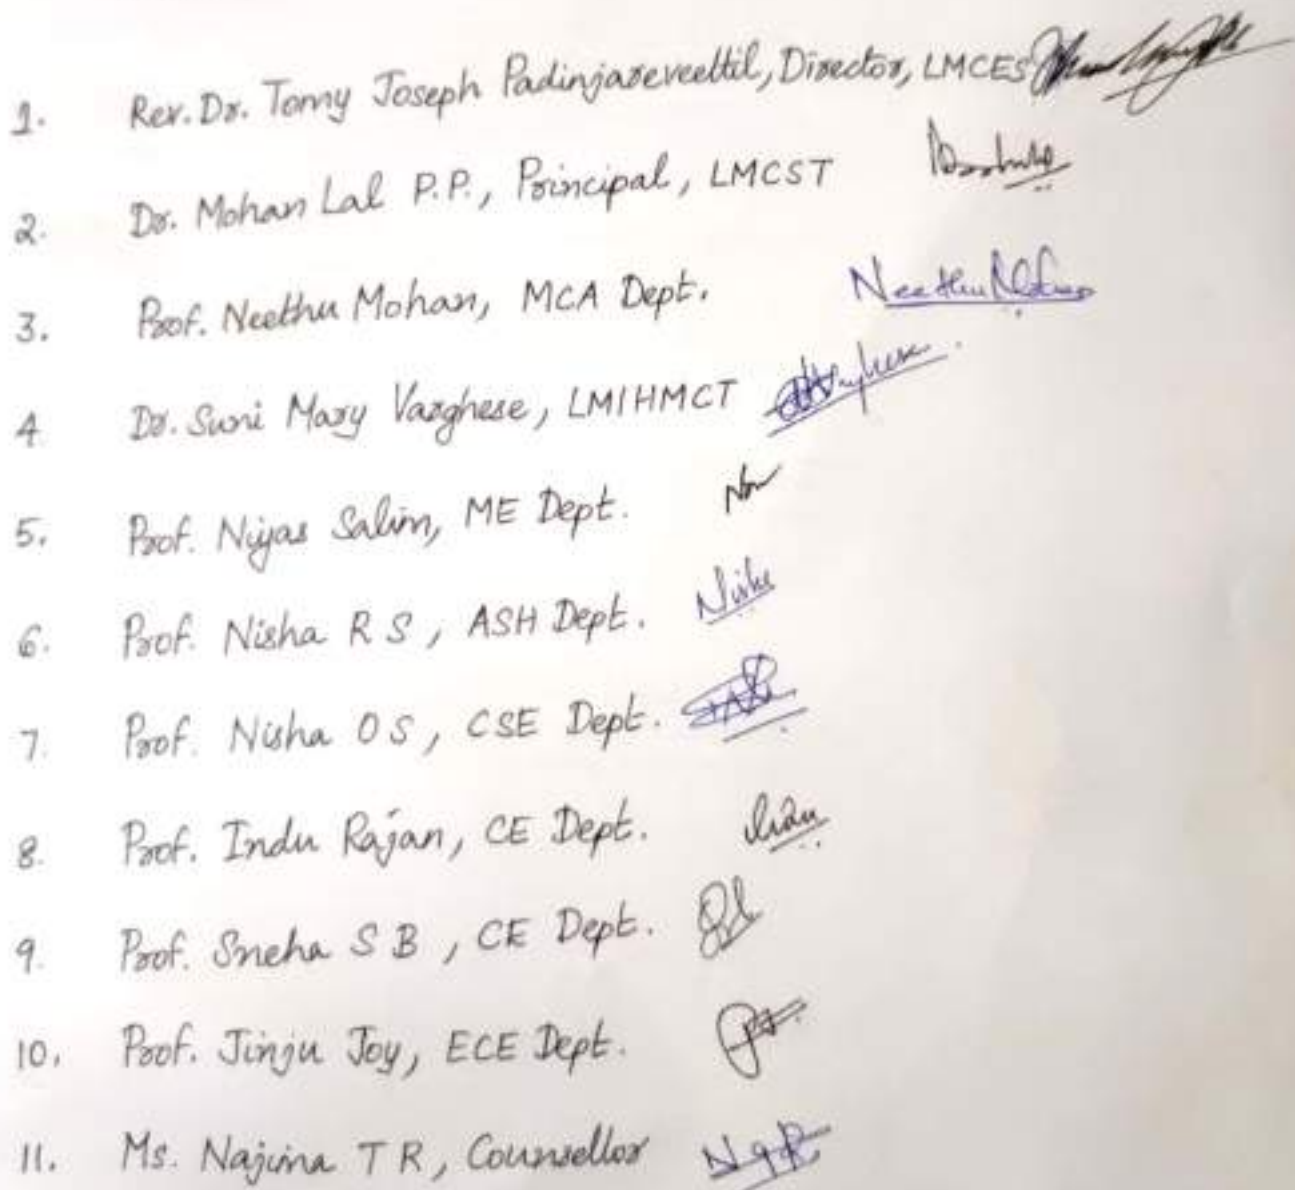 1. Rev. Dr. Tomy Joseph Padinjareveettil, Director, LMCES
2. Dr. Mohan Lal P.P., Principal, LMCST
3. Prof. Neethu Mohan, MCA Dept. Neethu Mohan
4 Dr. Suni Mary Varghese, LMIHMCT
5. Prof. Niyas Salim, ME Dept.
6. Prof. Nisha R S, ASH Dept. Nisha
7. Prof. Nisha O S, CSE Dept.
8. Prof. Indu Rajan, CE Dept. Indu
9. Prof. Sneha S B, CE Dept.
10. Prof. Jinju Joy, ECE Dept.
11. Ms. Najima T R, Counsellor